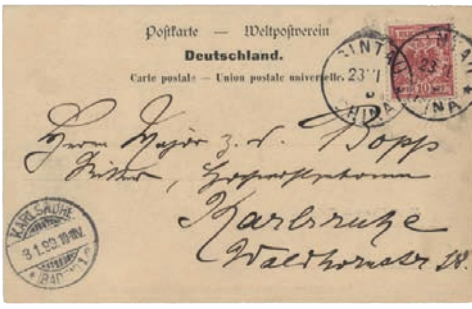 Postkarte — Weltpostverein
Deutschland.
Carte postale — Union postale universelle.
TSINTAU
23/1
CHINA
10
Herrn Major z. D. Bopp
Ritter,
Karlsruhe
Waldhornstr 18.
KARLSRUHE
3 1.99.10-11V.
(BADEN) 1